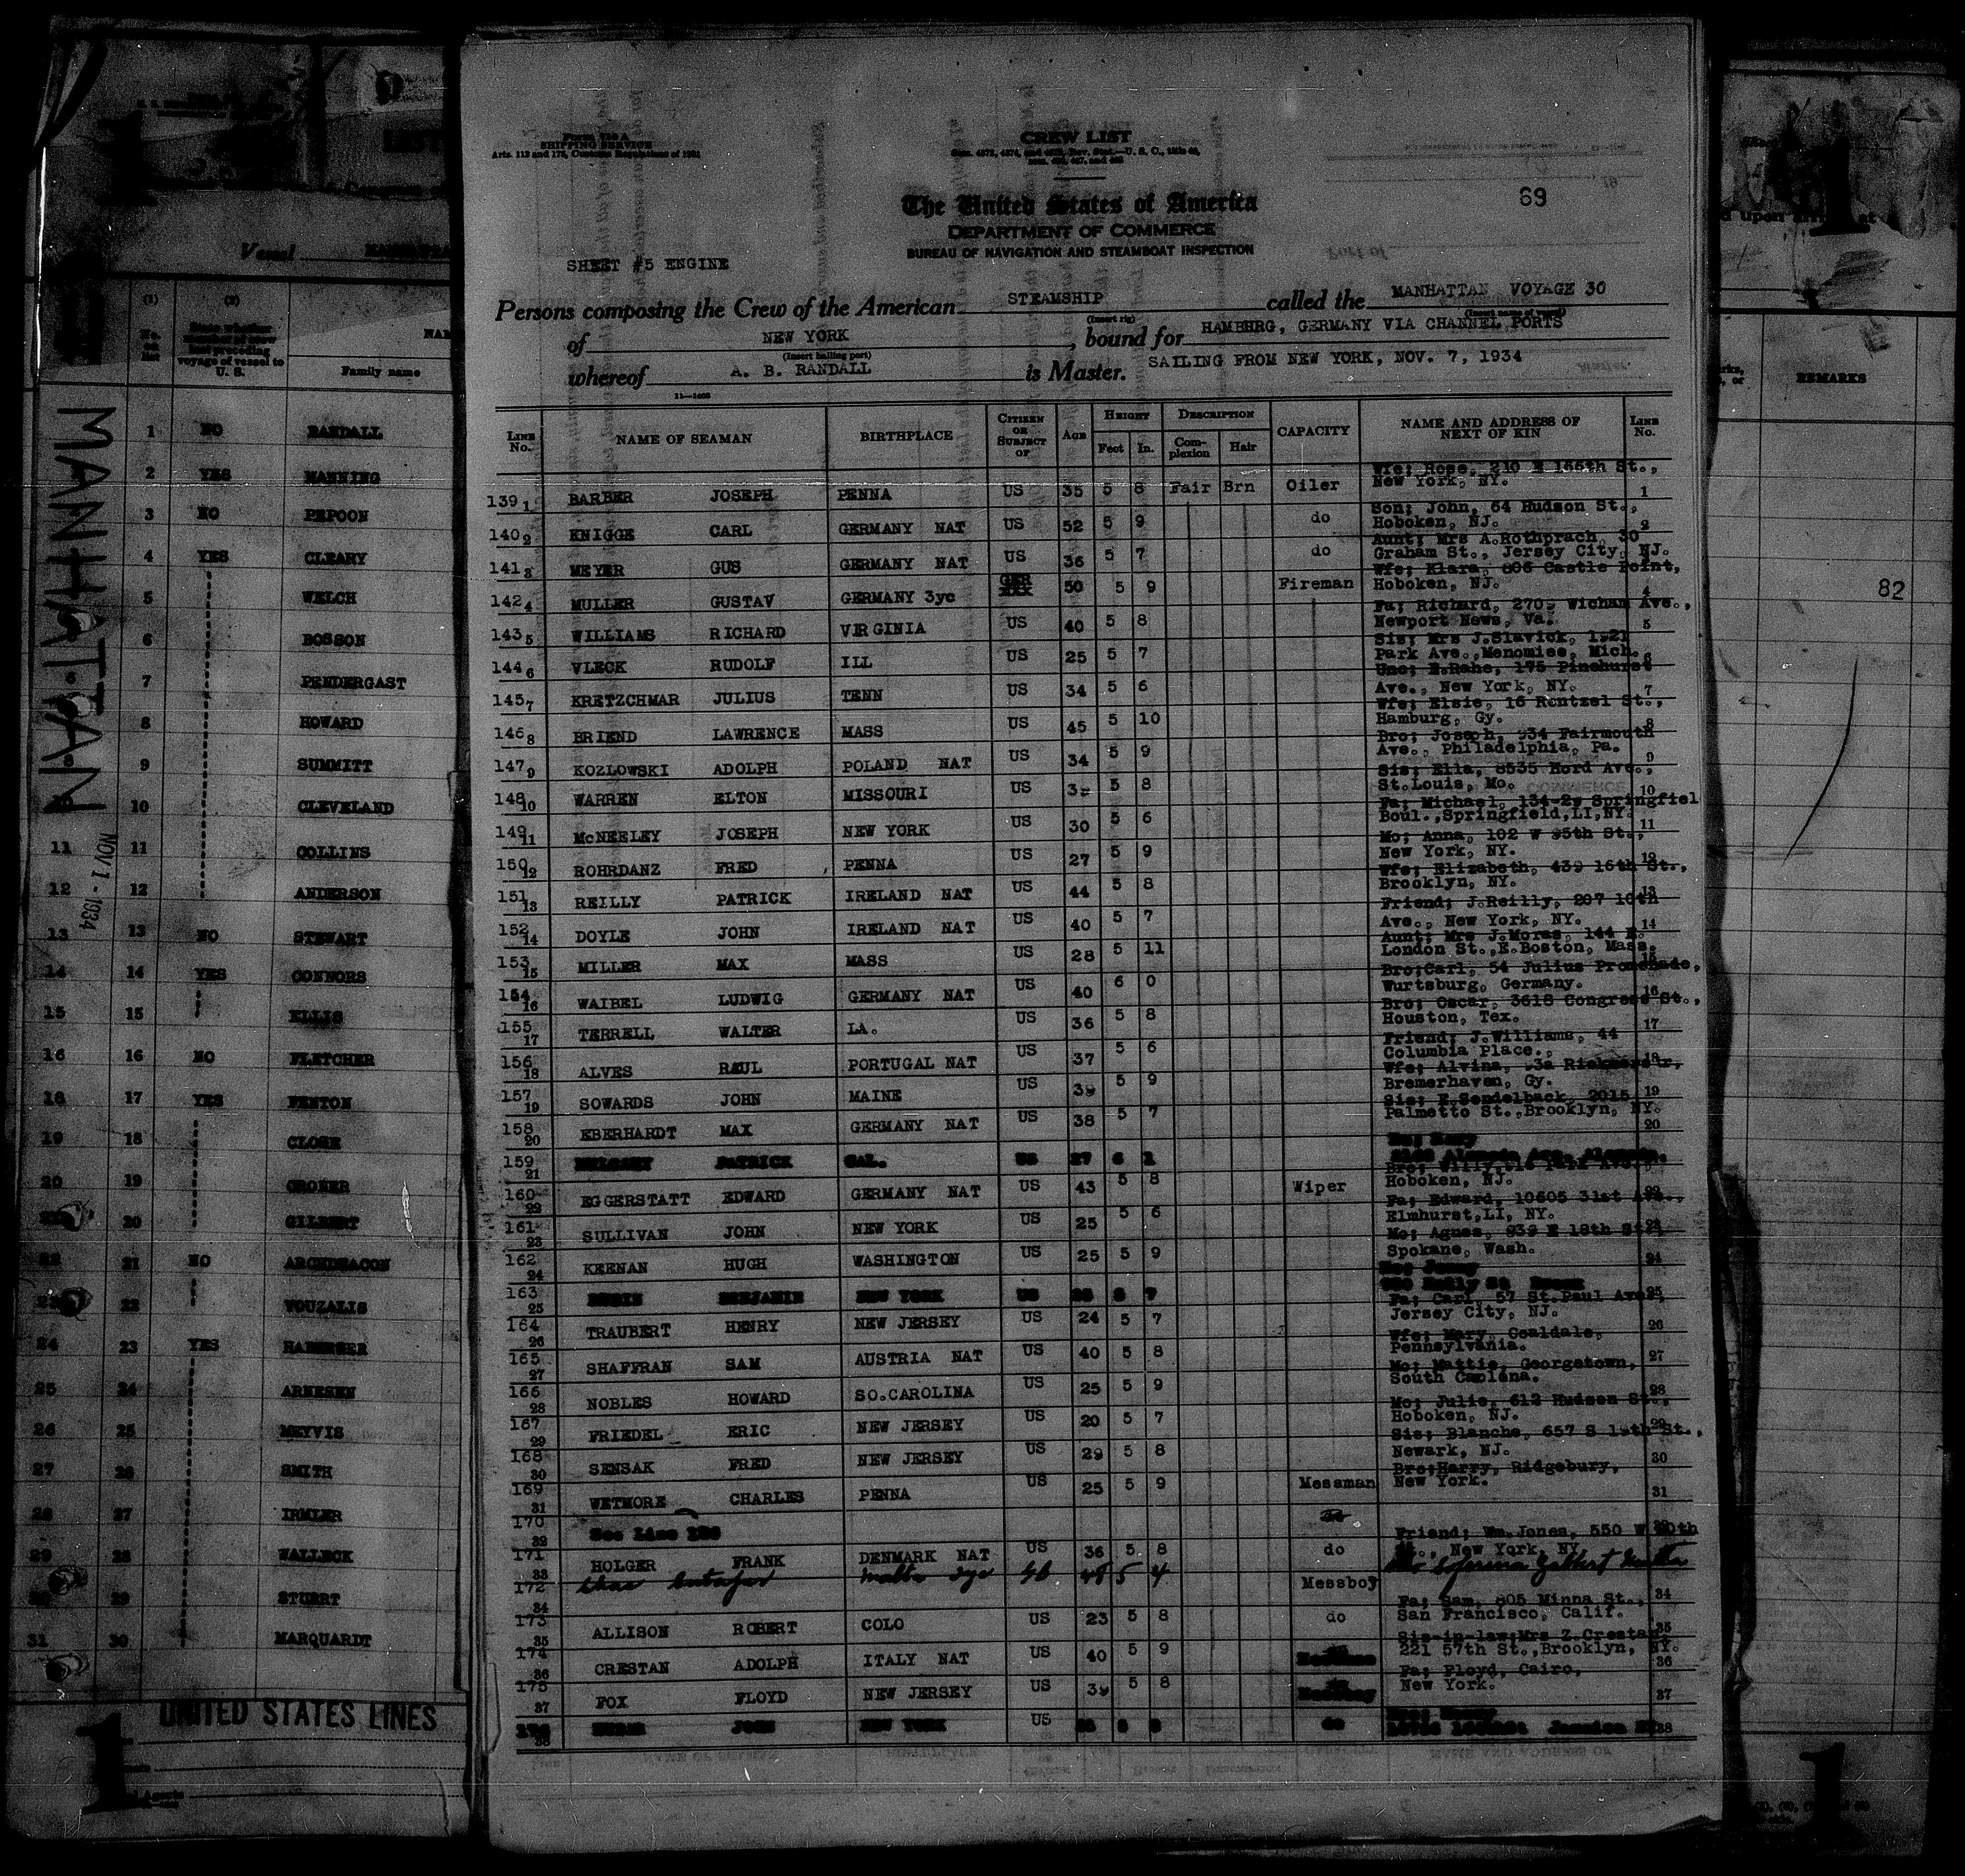 Form 710 A
SHIPPING SERVICE
Arts. 112 and 175, Customs Regulations of 1931
CREW LIST
The United States of America
DEPARTMENT OF COMMERCE
BUREAU OF NAVIGATION AND STEAMBOAT INSPECTION
69
SHEET #5 ENGINE
Persons composing the Crew of the American STEAMSHIP called the MANHATTAN VOYAGE 30
(Insert rig) (Insert name of vessel)
of NEW YORK, bound for HAMBURG, GERMANY VIA CHANNEL PORTS
(Insert hailing port)
whereof A. B. RANDALL is Master. SAILING FROM NEW YORK, NOV. 7, 1934
LINE No. NAME OF SEAMAN BIRTHPLACE CITIZEN OR SUBJECT OF AGE HEIGHT Feet In. DESCRIPTION Complexion Hair CAPACITY NAME AND ADDRESS OF NEXT OF KIN LINE No.
139 1 BARBER JOSEPH PENNA US 35 5 8 Fair Brn Oiler Wfe; Rose, 210 E 166th St., New York, NY. 1
140 2 KNIGGE CARL GERMANY NAT US 52 5 9 do Son; John, 64 Hudson St., Hoboken, NJ. 2
141 3 MEYER GUS GERMANY NAT US 36 5 7 do Aunt; Mrs A.Rothprach, 30 Graham St., Jersey City, NJ.
142 4 MULLER GUSTAV GERMANY 3yc GER 50 5 9 Fireman Wfe; Klara, 806 Castle Point, Hoboken, NJ. 4
143 5 WILLIAMS RICHARD VIRGINIA US 40 5 8 Fa; Richard, Wicham Ave., Newport News, Va. 5
144 6 VLECK RUDOLF ILL US 25 5 7 Sis; Mrs J.Slavick, 1921 Park Ave., Menomiee, Mich. 6
145 7 KRETZCHMAR JULIUS TENN US 34 5 6 Unc; E.Rahe, 175 Pinehurst Ave., New York, NY. 7
146 8 BRIEND LAWRENCE MASS US 45 5 10 Wfe; Elsie, 16 Rentzel St., Hamburg, Gy. 8
147 9 KOZLOWSKI ADOLPH POLAND NAT US 34 5 9 Bro; Joseph, 934 Fairmouth Ave., Philadelphia, Pa. 9
148 10 WARREN ELTON MISSOURI US 5 8 Sis; Ella, 8535 Hord Ave., St.Louis, Mo. 10
149 11 McNEELEY JOSEPH NEW YORK US 30 5 6 Fa; Michael, 134-29 Springfiel Boul.,Springfield,LI,NY. 11
150 12 ROHRDANZ FRED PENNA US 27 5 9 Mo; Anna, 102 W 95th St., New York, NY. 12
151 13 REILLY PATRICK IRELAND NAT US 44 5 8 Wfe; Elizabeth, 439 16th St., Brooklyn, NY. 13
152 14 DOYLE JOHN IRELAND NAT US 40 5 7 Friend; J.Reilly, 207 10th Ave., New York, NY. 14
153 15 MILLER MAX MASS US 28 5 11 Aunt; Mrs J.Moras, 144 E. London St.,E.Boston, Mass. 15
154 16 WAIBEL LUDWIG GERMANY NAT US 40 6 0 Bro;Carl, 54 Julius Promenade, Wurtsburg, Germany. 16
155 17 TERRELL WALTER LA. US 36 5 8 Bro; Oscar, 3618 Congress St., Houston, Tex. 17
156 18 ALVES RAUL PORTUGAL NAT US 37 5 6 Friend; J.Williams, 44 Columbia Place., 18
157 19 SOWARDS JOHN MAINE US 39 5 9 Wfe; Alvina, 93a Bremerhaven, Gy. 19
158 20 EBERHARDT MAX GERMANY NAT US 38 5 7 Sis; E.Sendelback, 2015 Palmetto St.,Brooklyn, NY. 20
159 21 PATRICK CAL. US 27 6 1
160 22 EGGERSTATT EDWARD GERMANY NAT US 43 5 8 Wiper Bro; Willy, Park Ave., Hoboken, NJ. 22
161 23 SULLIVAN JOHN NEW YORK US 25 5 6 Fa; Edward, 10605 31st Ave., Elmhurst,LI, NY. 23
162 24 KEENAN HUGH WASHINGTON US 25 5 9 Mo; Agnes, 939 E 18th St., Spokane, Wash. 24
163 25 BENJAMIN NEW YORK US 5 7 25
164 26 TRAUBERT HENRY NEW JERSEY US 24 5 7 Fa; Carl, 57 St.Paul Ave., Jersey City, NJ. 26
165 27 SHAFFRAN SAM AUSTRIA NAT US 40 5 8 Wfe; Mary, Coaldale, Pennsylvania. 27
166 28 NOBLES HOWARD SO.CAROLINA US 25 5 9 Mo; Mattie, Georgetown, South Caolina. 28
167 29 FRIEDEL ERIC NEW JERSEY US 20 5 7 Mo; Julie, 612 Hudson St., Hoboken, NJ. 29
168 30 SENSAK FRED NEW JERSEY US 29 5 8 Sis; Blanche, 657 S 19th St., Newark, NJ. 30
169 31 WETMORE CHARLES PENNA US 25 5 9 Messman Bro;Harry, Ridgebury, New York. 31
170 32 See Line
171 33 HOLGER FRANK DENMARK NAT US 36 5 8 do Friend; Wm.Jones, 550 W St., New York, NY.
172 34 Malta 48 5 4 Messboy 34
173 35 ALLISON ROBERT COLO US 23 5 8 do Fa; Sam, 805 Minna St., San Francisco, Calif. 35
174 36 CRESTAN ADOLPH ITALY NAT US 40 5 9 Sis-in-law;Mrs Z.Crestan, 221 57th St.,Brooklyn, NY. 36
175 37 FOX FLOYD NEW JERSEY US 39 5 8 Fa; Floyd, Cairo, New York. 37
38 JOHN NEW YORK US do 38
MANHATTAN
NOV 1 - 1934
Vessel
(1) (2)
No. on list
Family name
1 NO RANDALL
2 YES MANNING
3 NO PEPOON
4 YES CLEARY
5 WELCH
6 BOSSON
7 PENDERGAST
8 HOWARD
9 SUMMITT
10 CLEVELAND
11 11 COLLINS
12 12 ANDERSON
13 13 NO STEWART
14 14 YES CONNORS
15 15 ELLIS
16 16 NO FLETCHER
18 17 YES FENTON
19 18 CLOSE
20 19 GRONER
20 GILBERT
22 21 NO ARCHDEACON
22 VOUZALIS
24 23 YES HABERGER
25 24 ARNESEN
26 25 MEYVIS
27 26 SMITH
28 27 IRMLER
29 28 WALLECK
29 STUERT
31 30 MARQUARDT
UNITED STATES LINES
1
REMARKS
82
1